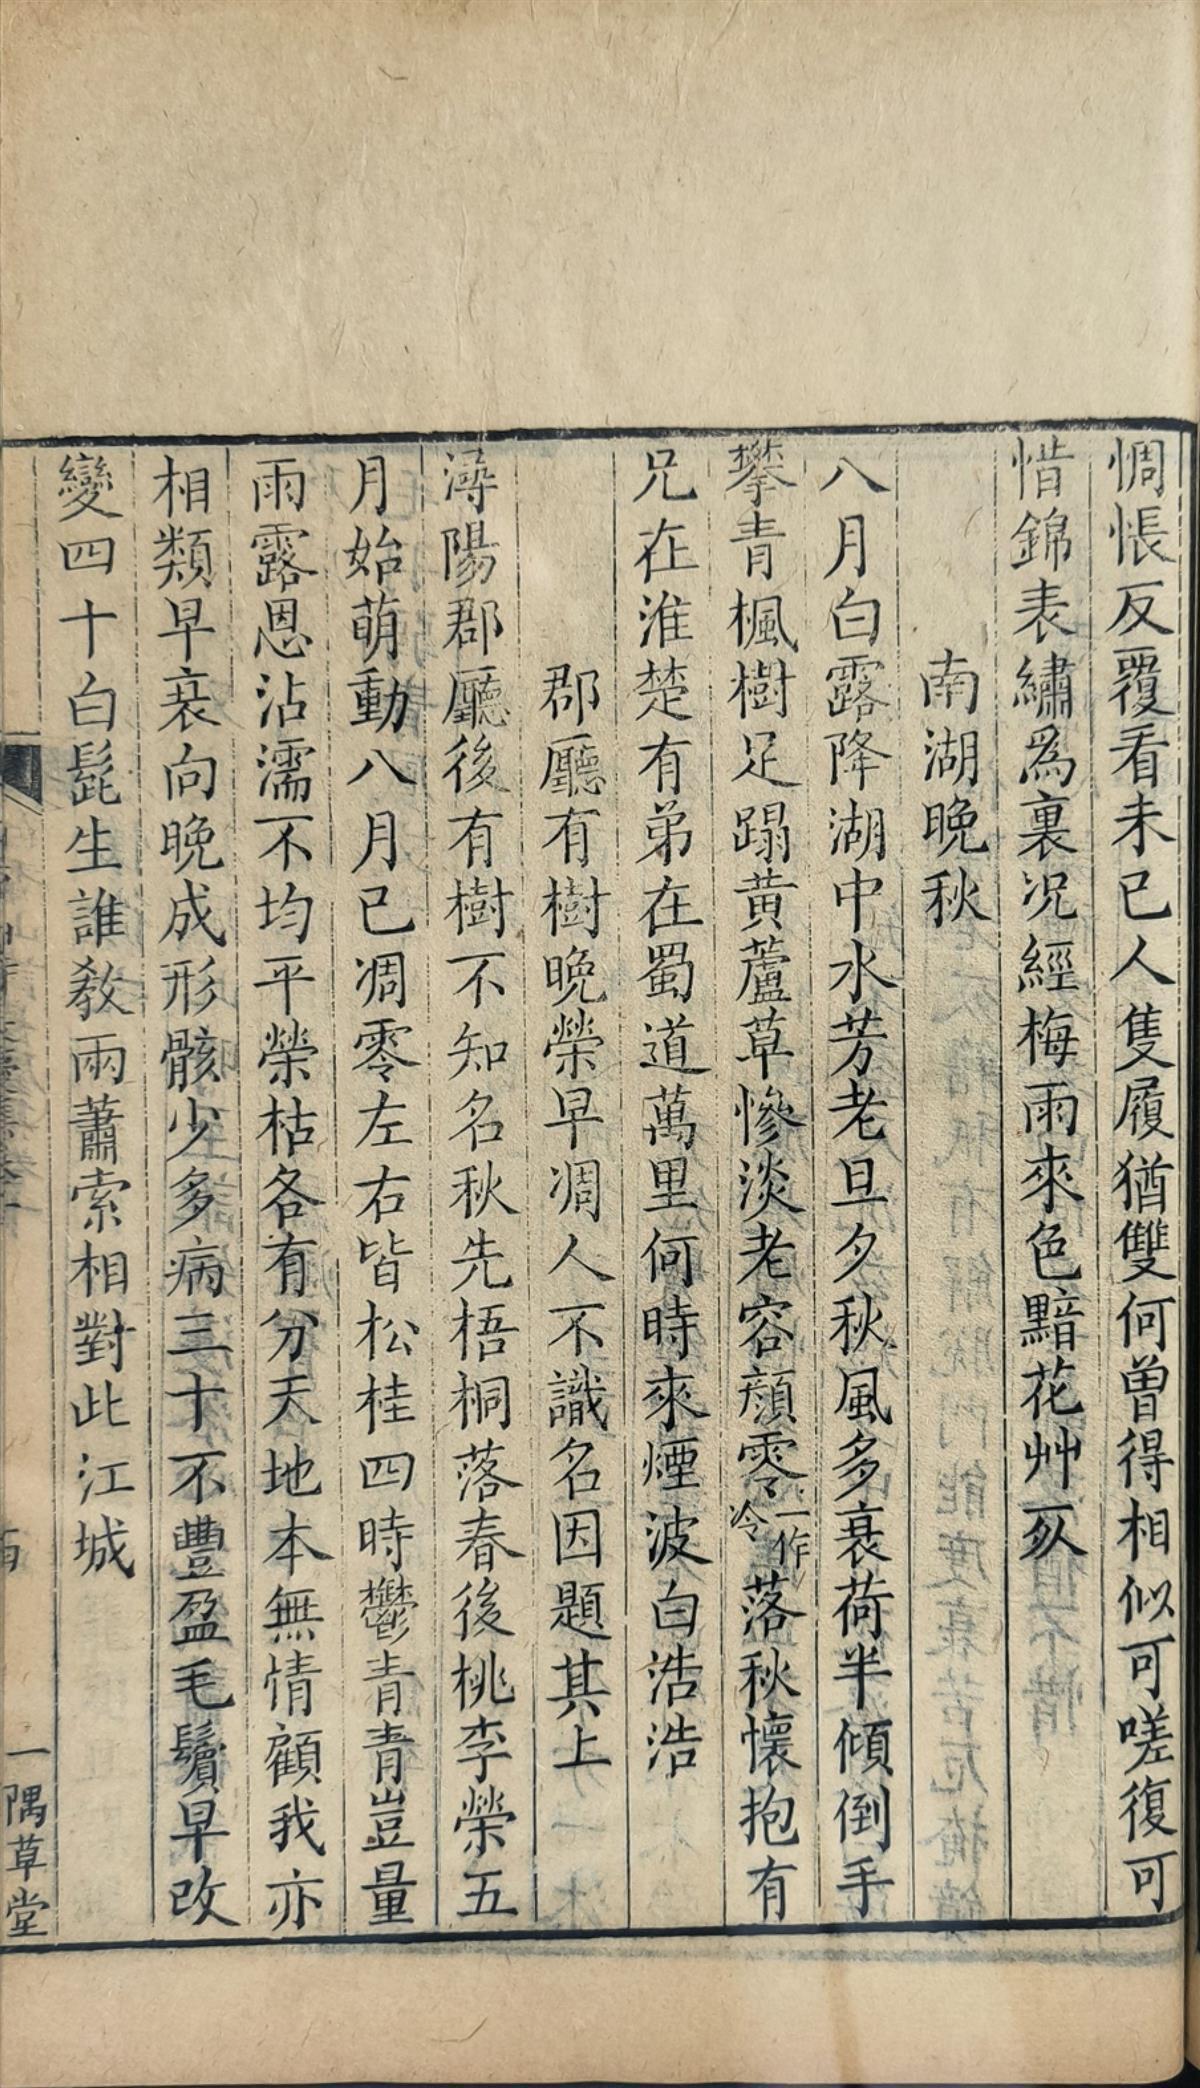 惆悵反覆看未已人隻履猶雙何曾得相似可嗟復可
惜錦表繡爲裏况經梅雨來色黯花艸𣦸
南湖晚秋
八月白露降湖中水芳老旦夕秋風多衰荷半傾倒手
攀青楓樹足蹋黃蘆草慘淡老容顏零一作冷落秋懷抱有
兄在淮楚有弟在蜀道萬里何時來煙波白浩浩
郡廳有樹晚榮早凋人不識名因題其上
潯陽郡廳後有樹不知名秋先梧桐落春後桃李榮五
月始萌動八月已凋零左右皆松桂四時鬱青青豈量
雨露恩沾濡不均平榮枯各有分天地本無情顧我亦
相類早衰向晚成形骸少多病三十不豐盈毛鬢早改
變四十白髭生誰敎兩蕭索相對此江城
一隅草堂